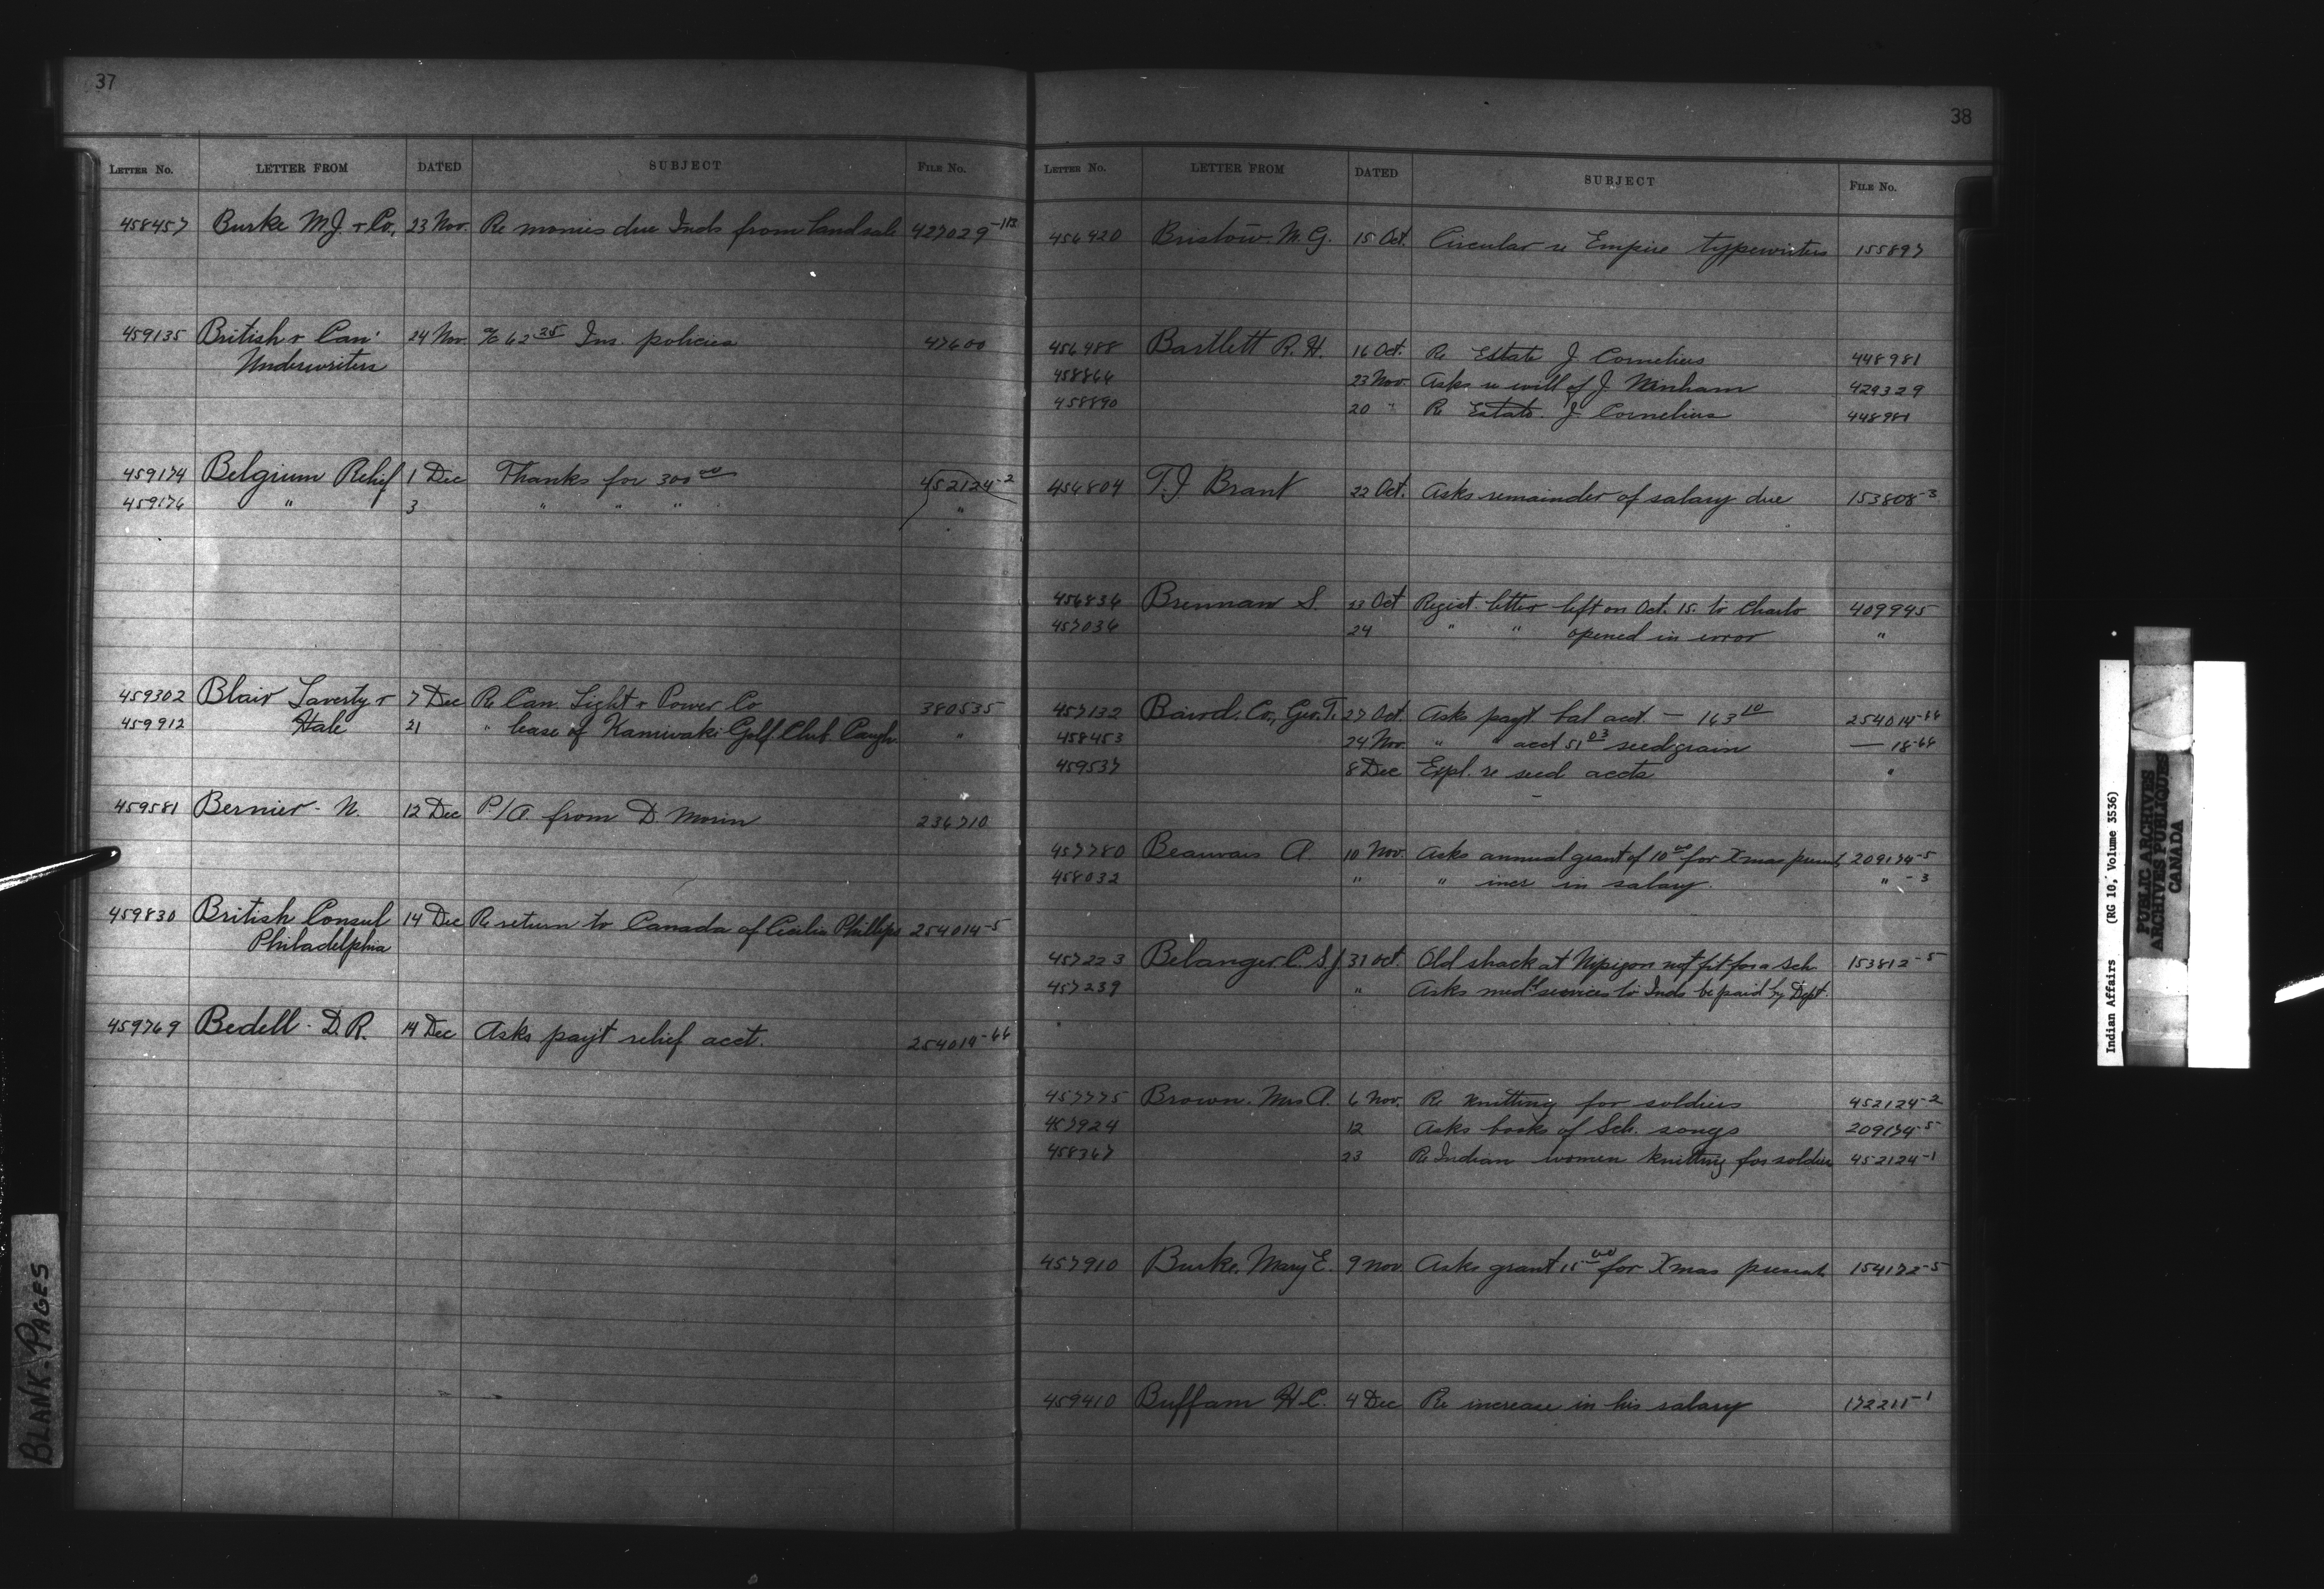 37
LETTER No. LETTER FROM DATED SUBJECT FILE No.
458457 Burke M.J. & Co., 23 Nov. Re monies due Inds from land sale 427029-1/13
459135 British & Can. 24 Nov. a/c 62.25 Ins. policies 47600
Underwriters
459174 Belgium Relief 1 Dec Thanks for 300.00 452124-2
459176 " 3 " " " "
459302 Blair Laverty & 7 Dec Re Can. Light & Power Co 380535
459912 Hale 21 " lease of Kanawaki Golf Club Caugh. "
459581 Bernier - N. 12 Dec P/A from D. Morin 236710
459830 British Consul 14 Dec Re return to Canada of Cecilia Phillips 254014-5
Philadelphia
459769 Bedell - D.R. 14 Dec Asks payt relief acct. 254014-66
38
LETTER No. LETTER FROM DATED SUBJECT FILE No.
456420 Bristow. M.G. 15 Oct. Circular re Empire typewriters 155897
456488 Bartlett R.H. 16 Oct. Re Estate J Cornelius 448981
458866 23 Nov. Asks re will of J. Ninham 429329
458890 20 " Re Estate. J. Cornelius 448981
456804 T.J. Brant 22 Oct. Asks remainder of salary due 153808-3
456836 Brennan S. 23 Oct Regist. letter left on Oct. 15. to Charlo 409945
457036 24 " " opened in error "
457132 Baird. Co., Geo. T. 27 Oct. Asks payt bal acct. — 163.10 254014-66
458453 24 Nov. " " acct 51.03 seed grain — 18-66
459537 8 Dec Expl. re seed accts "
457780 Beauvais A. 10 Nov Asks annual grant of 10.00 for Xmas presents 209174-5
458032 " " incr in salary. " -3
457223 Belanger C. S.J. 31 Oct. Old shack at Nipigon not fit for a Sch. 153812-5
457239 " Asks med'l services to Inds be paid by Dept.
457775 Brown. Mrs A. 6 Nov. Re knitting for soldiers 452124-2
457924 12 Asks books of Sch. songs 209174-5
458367 23 Re Indian women knitting for soldiers 452124-1
457910 Burke. Mary E. 9 Nov. Asks grant 15.00 for Xmas presents 154172-5
459410 Buffam H.C. 4 Dec Re increase in his salary 172211-1
BLANK-PAGES
Indian Affairs (RG 10, Volume 3536)
PUBLIC ARCHIVES
ARCHIVES PUBLIQUES
CANADA